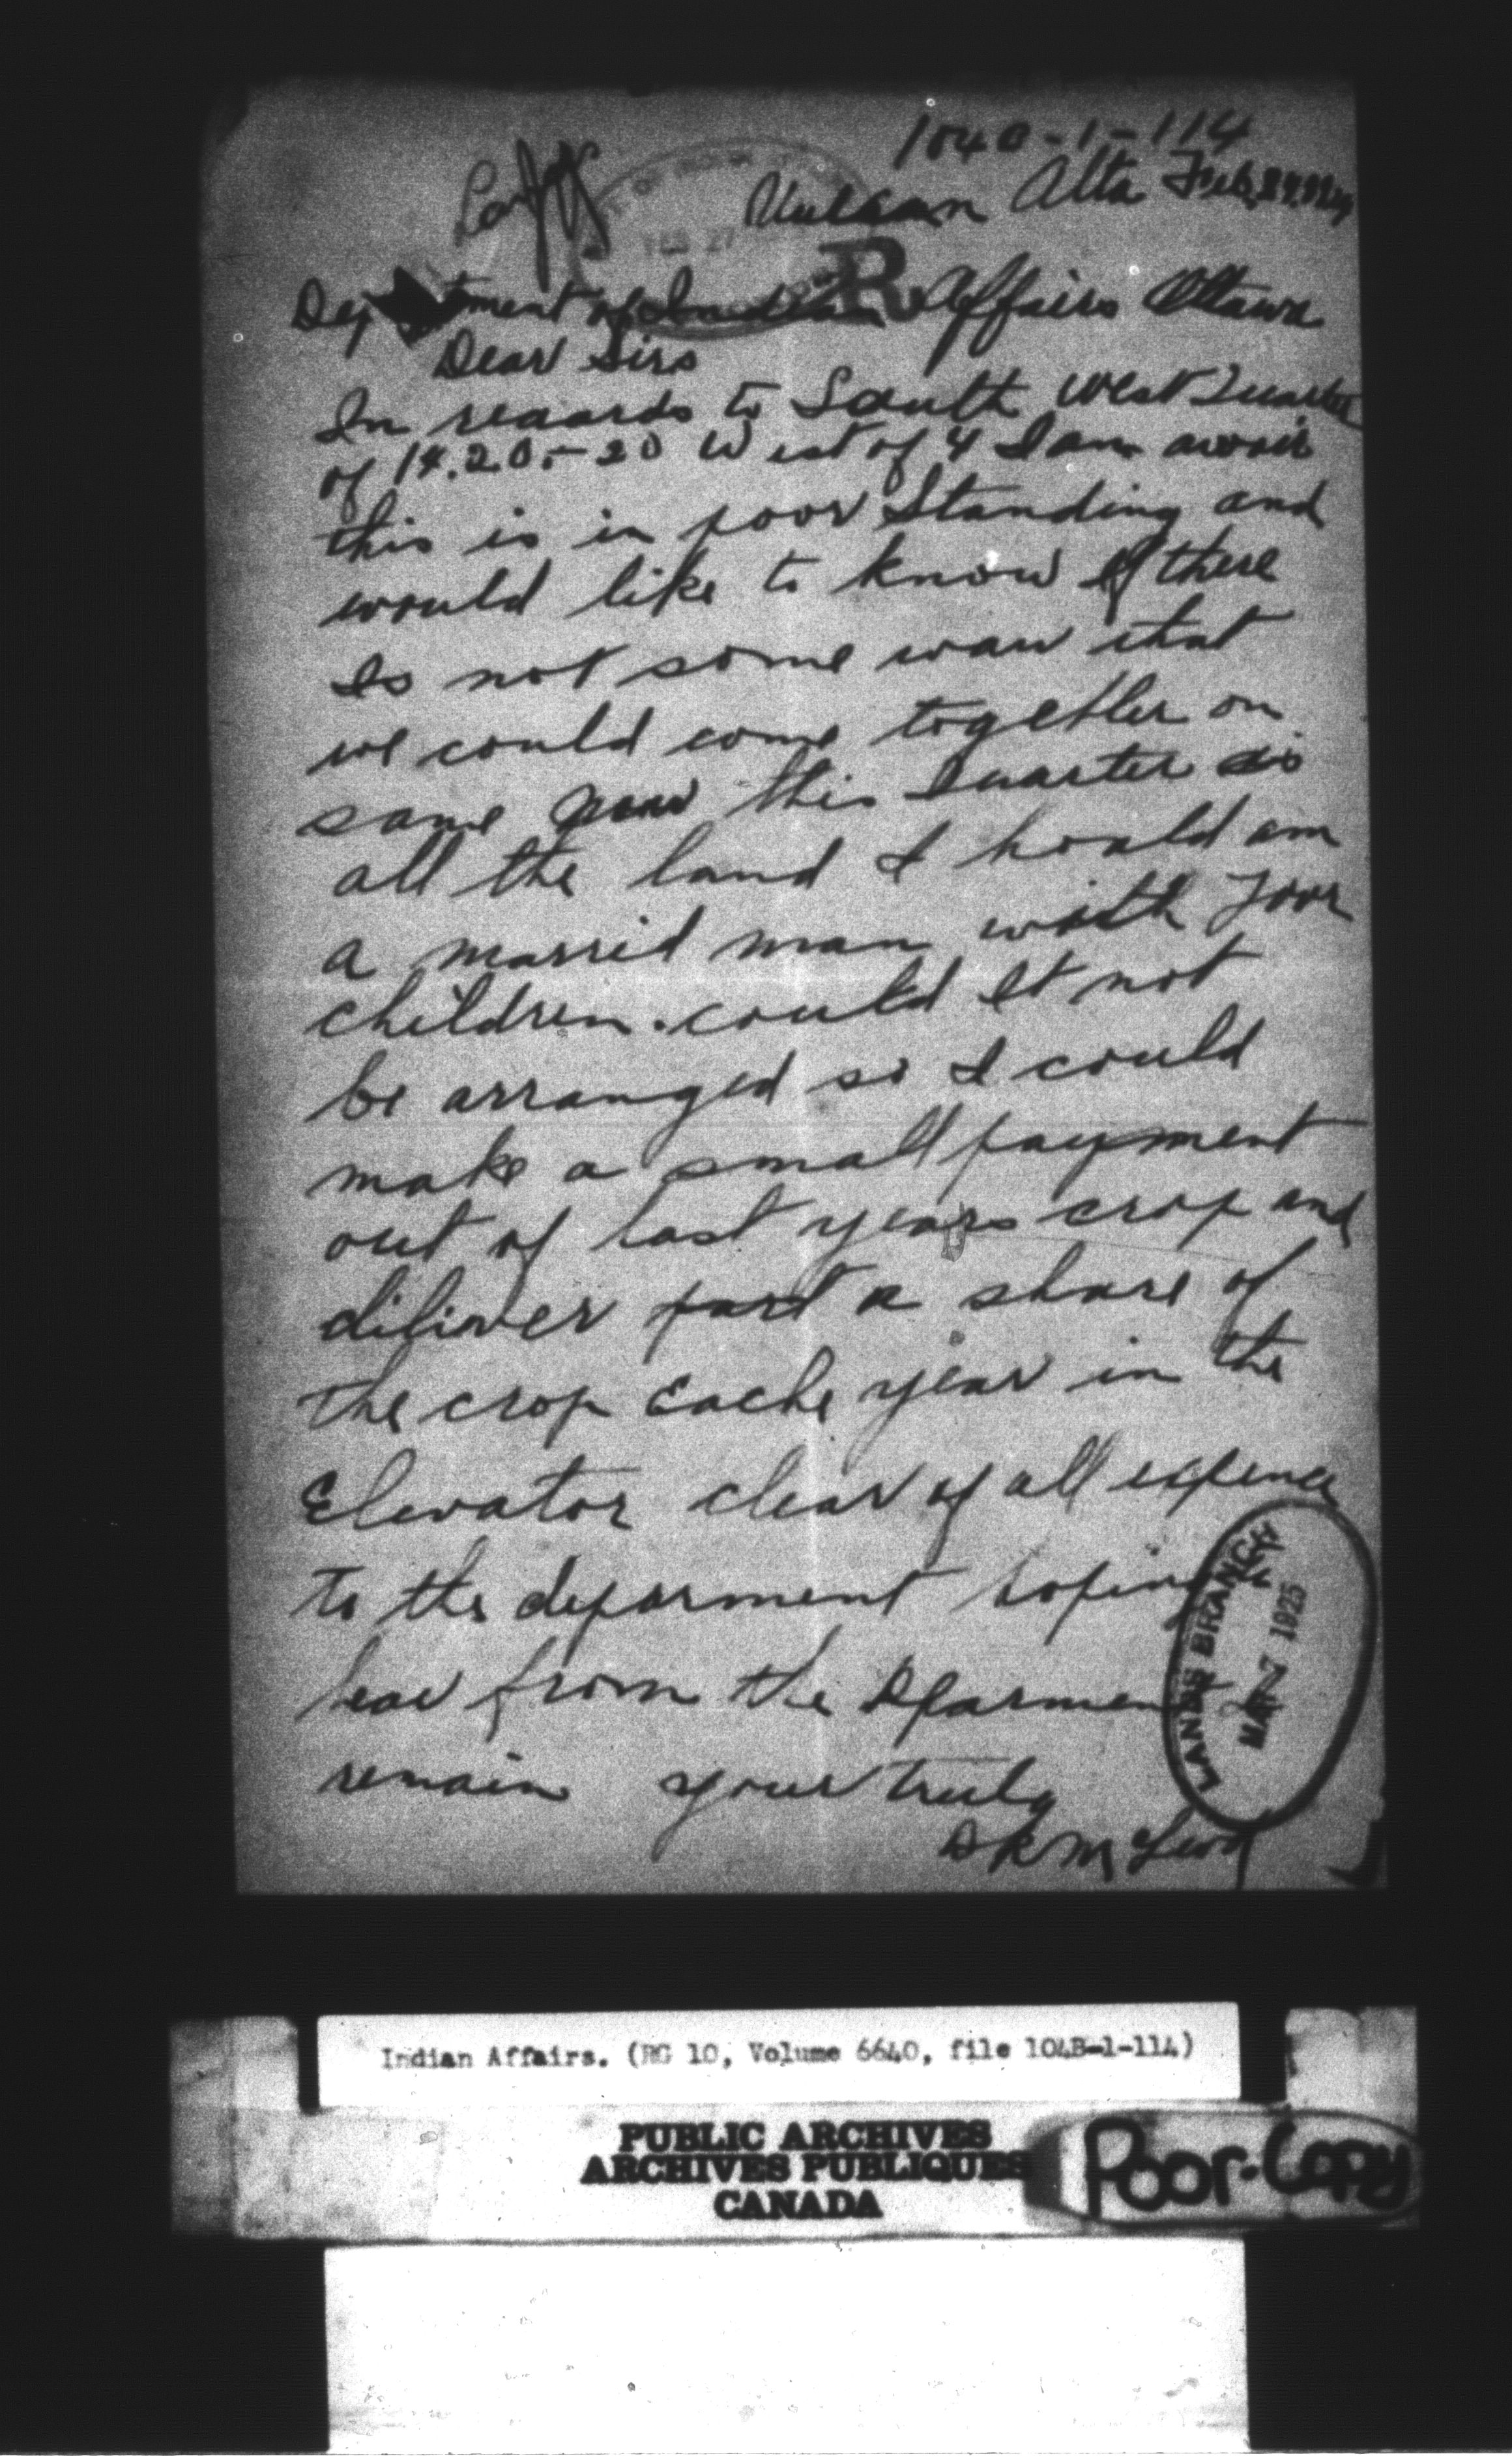 104B-1-114
Vulcan Alta Feb
FEB 27
R
Department of Indian Affairs Ottawa
Dear Sirs
In regards to South West Quarter
of 14.20.-20 West of 4 I am awair
this is in poor Standing and
would like to know if there
Is not some way that
we could come together on
same now this Quarter is
all the land I hould am
a marrid man with Four
children. could It not
be arranged so I could
make a small payment
out of last years crop and
diliver part a share of
the crop Eache year in the
Elevator clear of all expence
to the deparment hoping
hear from the Deparment
remain your truly
D R Mc
LANDS BRANCH
MAR 7 1925
Indian Affairs. (RG 10, Volume 6640, file 104B-1-114)
PUBLIC ARCHIVES
ARCHIVES PUBLIQUES
CANADA
Poor-Copy